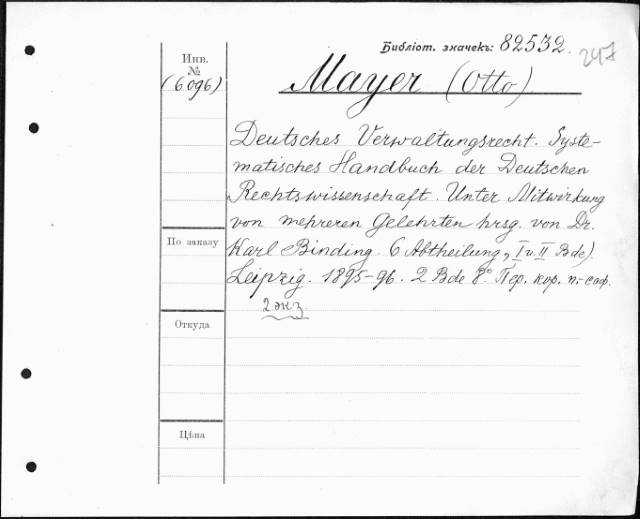 Библіот. значекъ: 82532. 247
Инв.
№
(6096)
Mayer (Otto)
Deutsches Verwaltungsrecht. Syste-
matisches Handbuch der Deutschen
Rechtswissenschaft. Unter Mitwirkung
von mehreren Gelehrten hrsg. von Dr.
Karl Binding. 6 Abtheilung, I u. II Bde).
Leipzig. 1895-96. 2 Bde 8º. Пер. кор. п.-саф.
2 экз
По заказу
Откуда
Цѣна